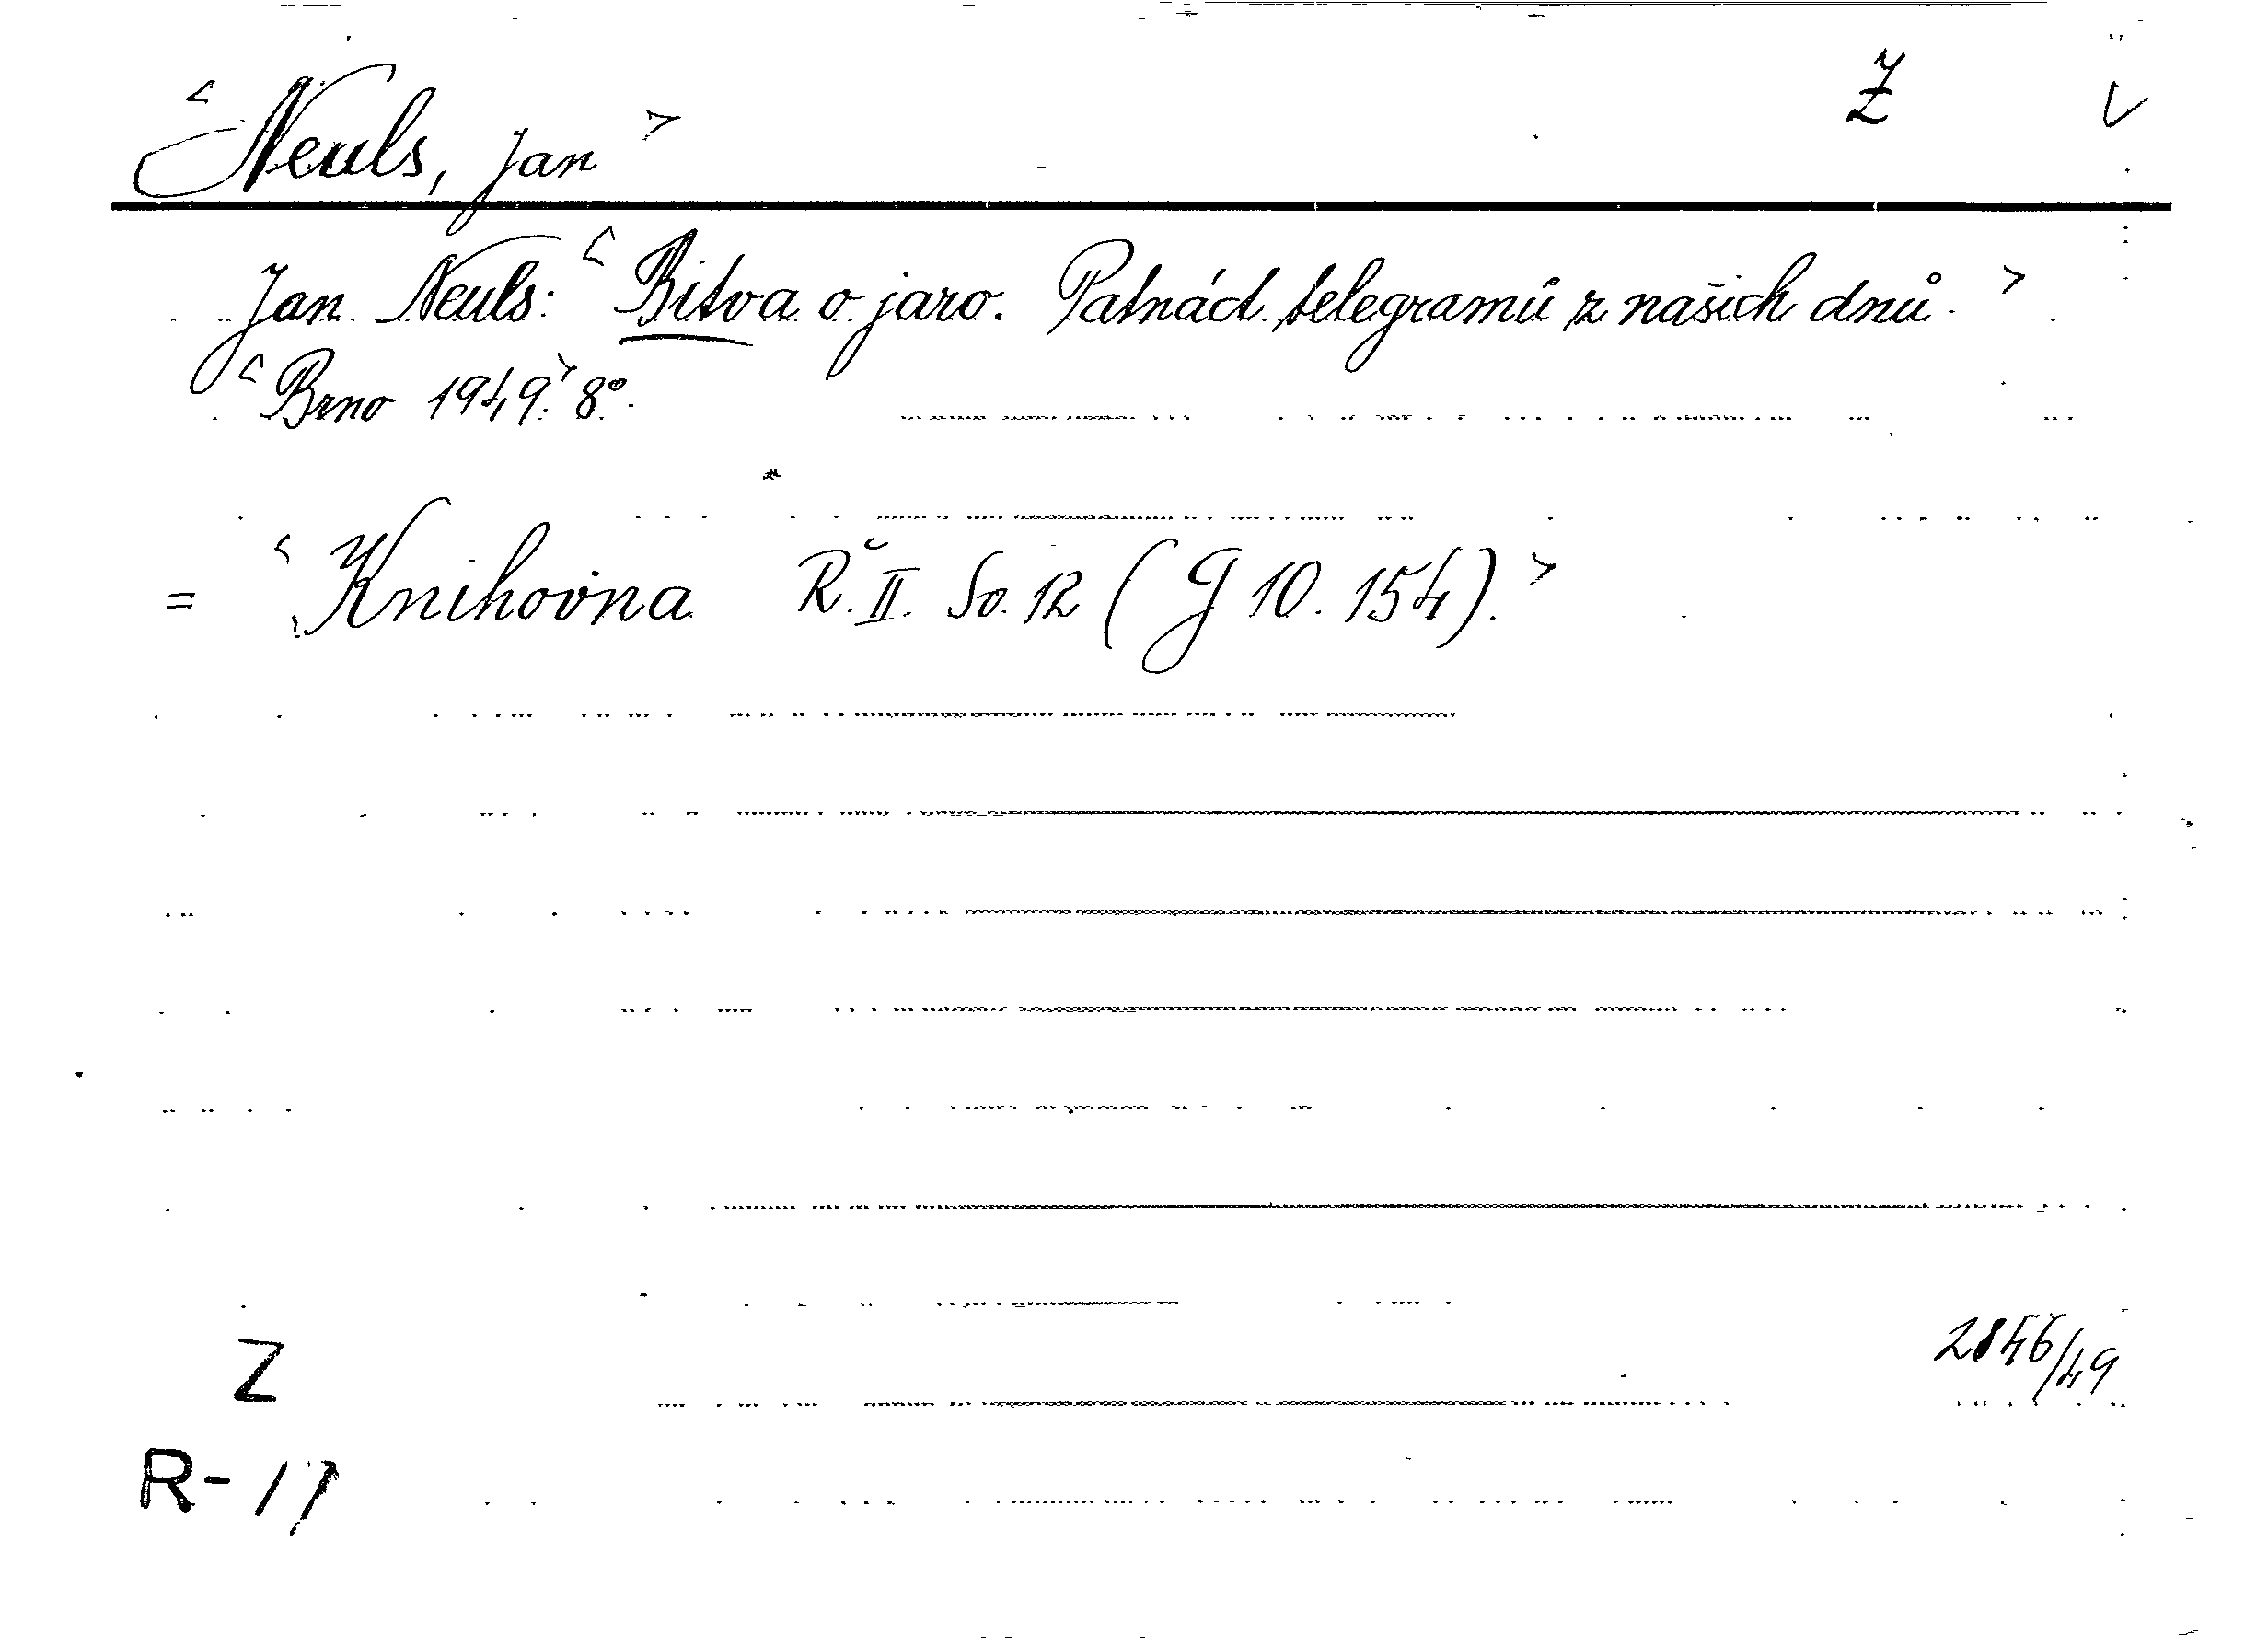 < Neuls, Jan > Z V
Jan Neuls: < Bitva o jaro. Patnáct telegramů z našich dnů. >
< Brno 1949. > 8°.
= < Knihovna Ř. II. Sv. 12 (G 10. 154). >
Z 2846/49
R-17